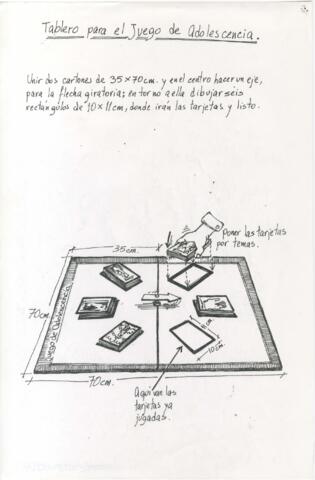 Tablero para el Juego de Adolescencia.
Unir dos cartones de 35x70cm. y en el centro hacer un eje,
para la flecha giratoria; en torno a ella dibujar seis
rectángulos de 10x11cm, donde irán las tarjetas y listo.
35cm.
poner las tarjetas
por temas.
70cm.
Juego de Adolescencia
11cm.
10cm.
70cm.
Aquí van las
tarjetas ya
jugadas.